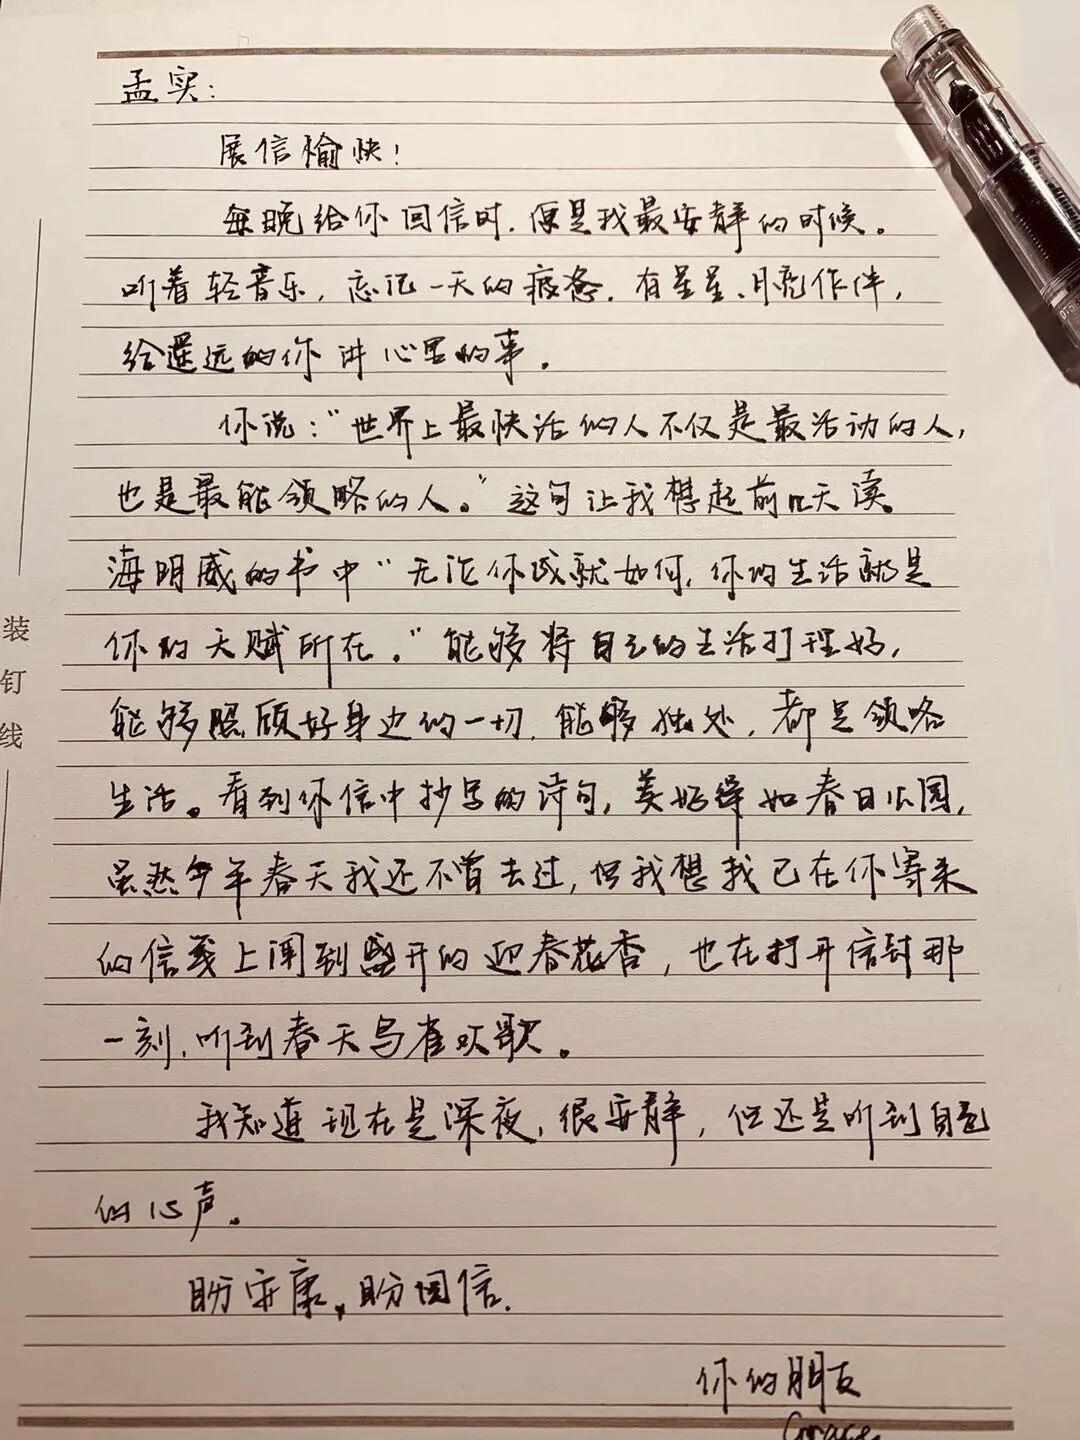 孟实：
展信愉快！
每晚给你回信时，便是我最安静的时候。
听着轻音乐，忘记一天的疲惫，有星星、月亮作伴，
给遥远的你讲心里的事。
你说：“世界上最快活的人不仅是最活动的人，
也是最能领略的人。”这句让我想起前几天读
海明威的书中“无论你成就如何，你的生活就是
你的天赋所在。”能够将自己的生活打理好，
能够照顾好身边的一切，能够独处，都是领略
生活。看到你信中抄写的诗句，美好得如春日公园，
虽然今年春天我还不曾去过，但我想我已在你寄来
的信笺上闻到盛开的迎春花香，也在打开信封那
一刻，听到春天鸟雀欢歌。
我知道现在是深夜，很安静，但还是听到自己
的心声。
盼安康，盼回信.
你的朋友
Grace
装
钉
线